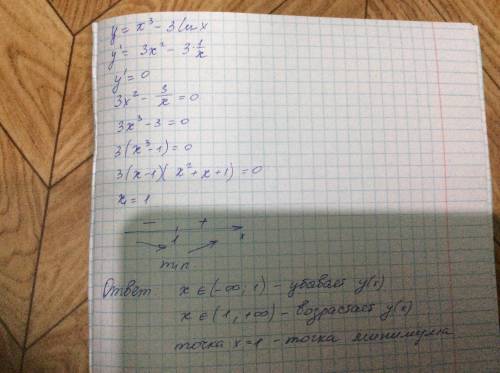 y = x³ - 3 ln x
y' = 3x² - 3·1/x
y' = 0
3x² - 3/x = 0
3x³ - 3 = 0
3(x³ - 1) = 0
3(x - 1)(x² + x + 1) = 0
x₁ = 1
- +
1 x
min
Ответ x ∈ (-∞; 1) - убывает y(x)
x ∈ (1, +∞) - возрастает y(x)
точка x = 1 - точка минимума